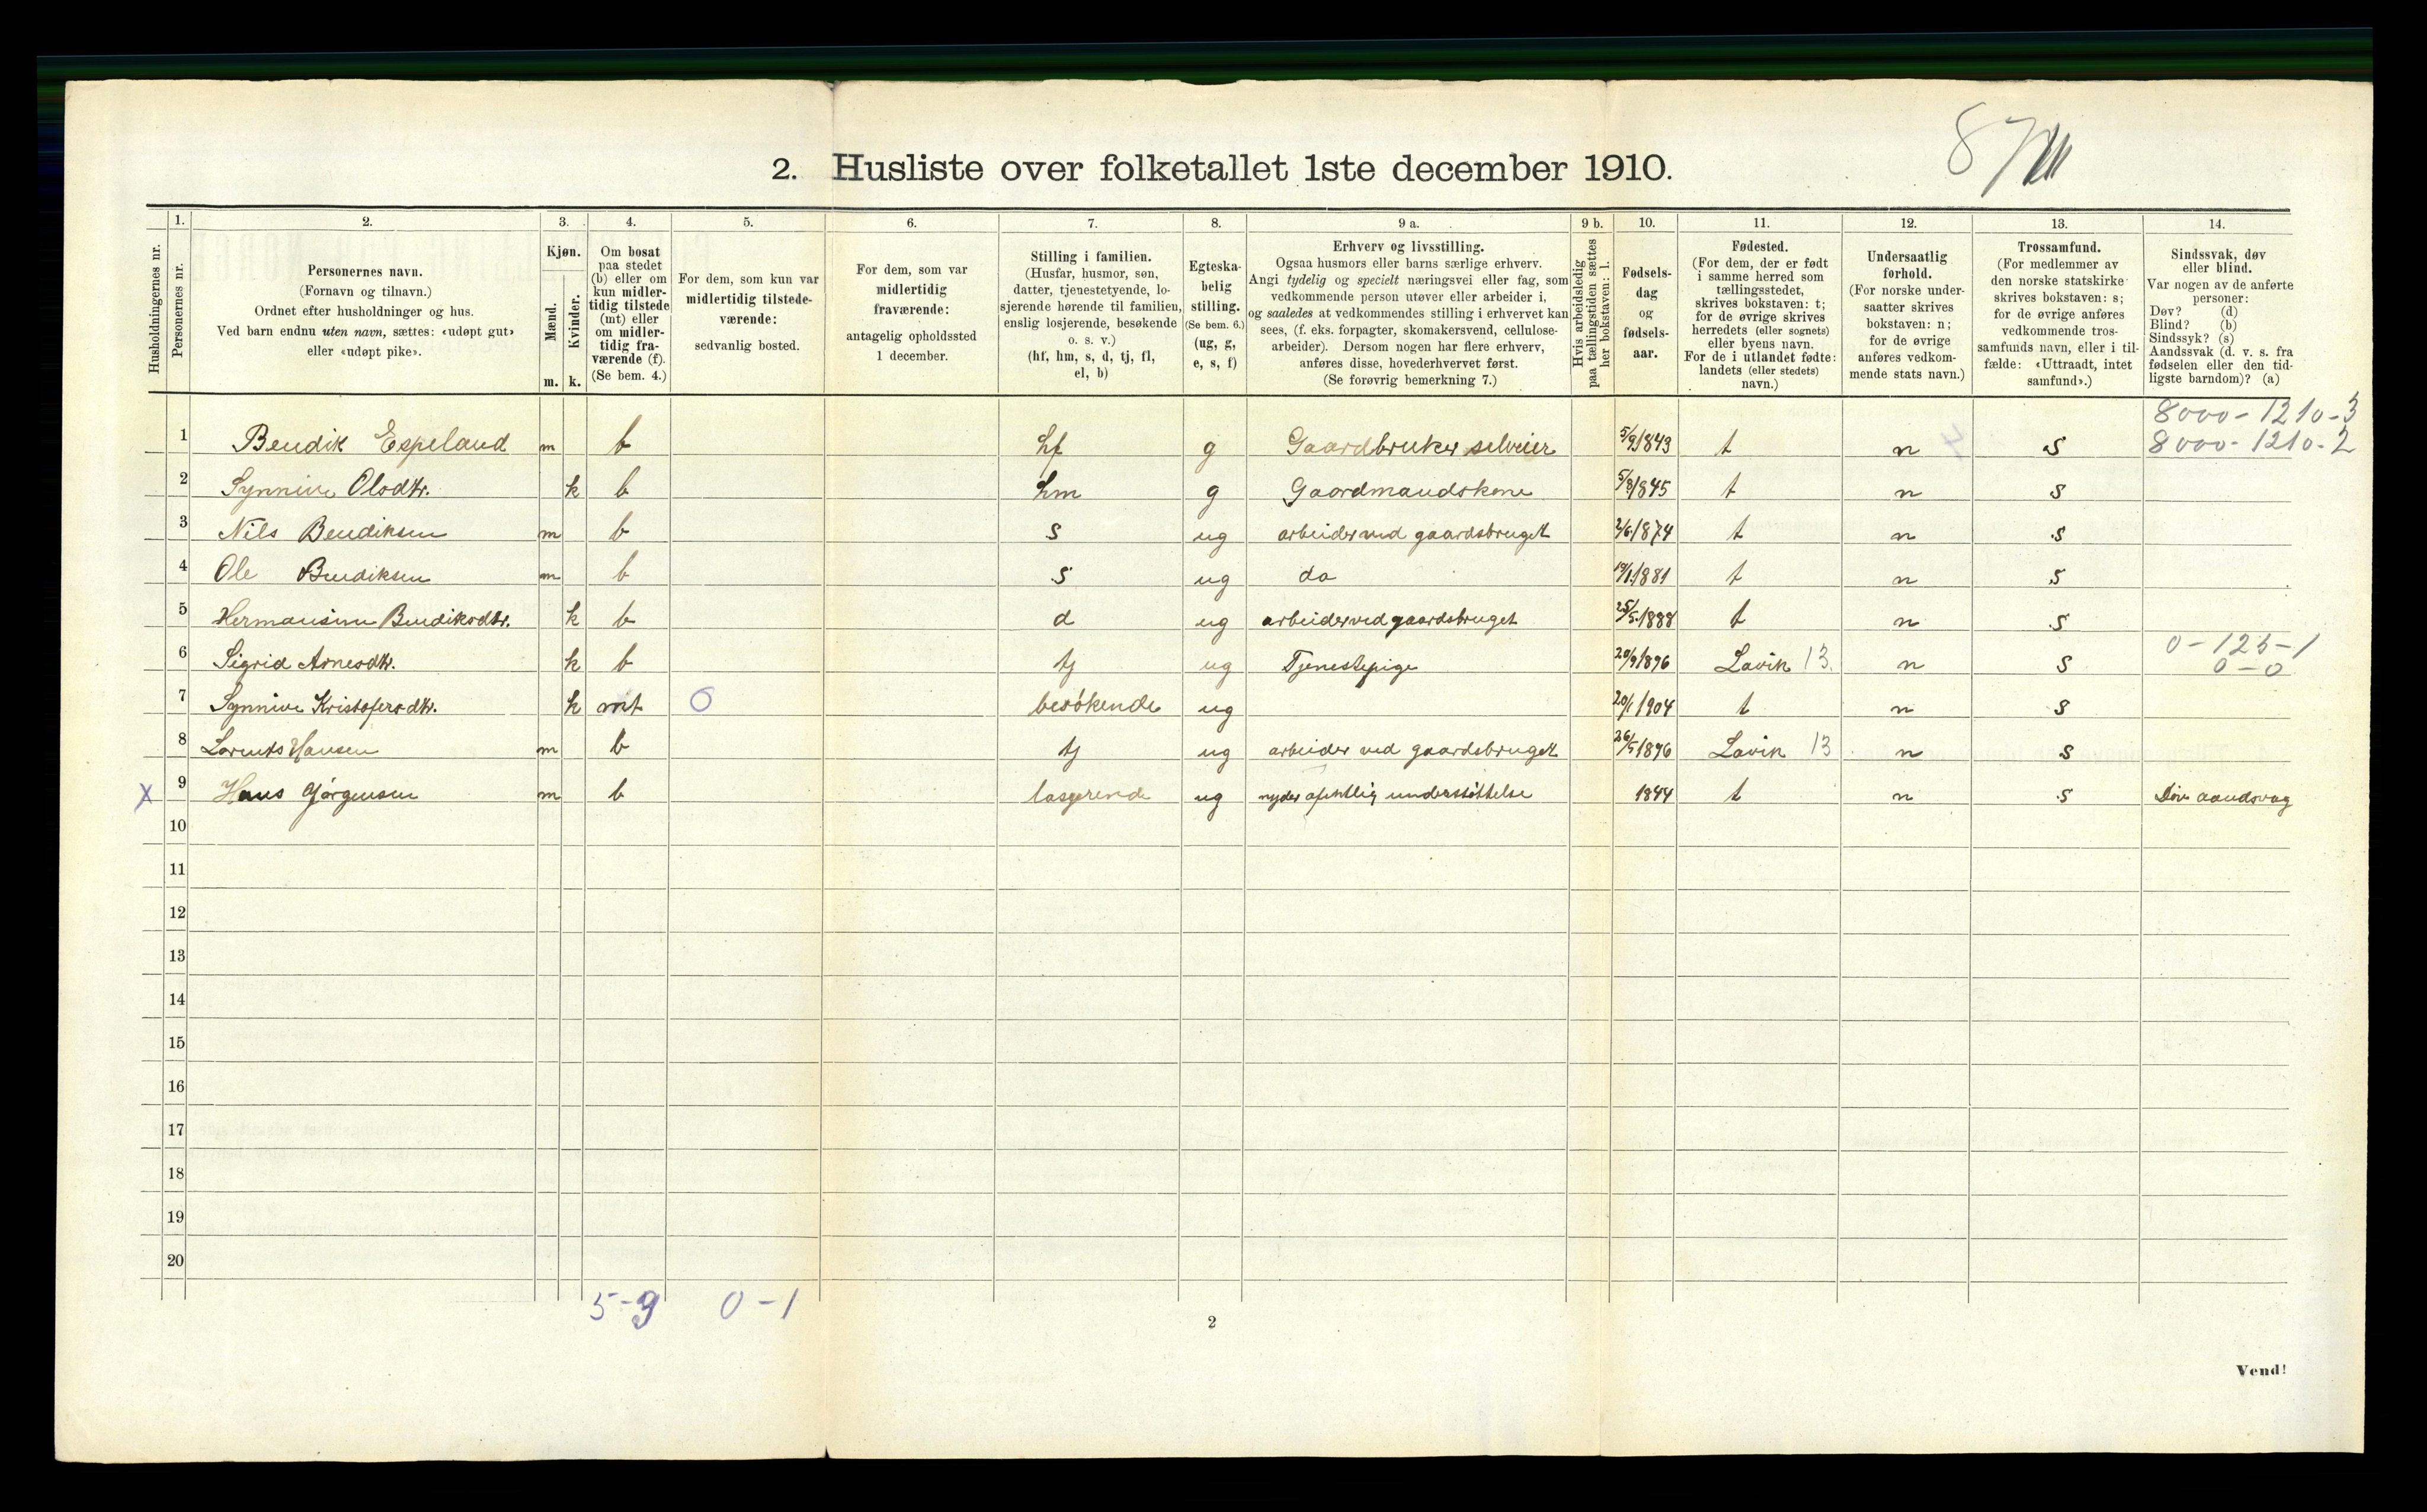 87
2. Husliste over folketallet 1ste december 1910.
Husholdningernes nr.
1. Personernes nr.
2. Personernes navn. (Fornavn og tilnavn.) Ordnet efter husholdninger og hus. Ved barn endnu uten navn, sættes: «udøpt gut» eller «udøpt pike».
3. Kjøn. Mænd. m. Kvinder. k.
4. Om bosat paa stedet (b) eller om kun midler-tidig tilstede (mt) eller om midler-tidig fra-værende (f). (Se bem. 4.)
5. For dem, som kun var midlertidig tilstede-værende: sedvanlig bosted.
6. For dem, som var midlertidig fraværende: antagelig opholdssted 1 december.
7. Stilling i familien. (Husfar, husmor, søn, datter, tjenestetyende, lo-sjerende hørende til familien, enslig losjerende, besøkende o. s. v.) (hf, hm, s, d, tj, fl, el, b)
8. Egteska-belig stilling. (Se bem. 6.) (ug, g, e, s, f)
9 a. Erhverv og livsstilling. Ogsaa husmors eller barns særlige erhverv. Angi tydelig og specielt næringsvei eller fag, som vedkommende person utøver eller arbeider i, og saaledes at vedkommendes stilling i erhvervet kan sees, (f. eks. forpagter, skomakersvend, cellulose-arbeider). Dersom nogen har flere erhverv, anføres disse, hovederhvervet først. (Se forøvrig bemerkning 7.)
9 b. Hvis arbeidsledig paa tællingstiden sættes her bokstaven: l.
10. Fødsels-dag og fødsels-aar.
11. Fødested. (For dem, der er født i samme herred som tællingsstedet, skrives bokstaven: t; for de øvrige skrives herredets (eller sognets) eller byens navn. For de i utlandet fødte: landets (eller stedets) navn.)
12. Undersaatlig forhold. (For norske under-saatter skrives bokstaven: n; for de øvrige anføres vedkom-mende stats navn.)
13. Trossamfund. (For medlemmer av den norske statskirke skrives bokstaven: s; for de øvrige anføres vedkommende tros-samfunds navn, eller i til-fælde: «Uttraadt, intet samfund».)
14. Sindssvak, døv eller blind. Var nogen av de anførte personer: Døv? (d) Blind? (b) Sindssyk? (s) Aandssvak (d. v. s. fra fødselen eller den tid-ligste barndom)? (a)
8000-1210-3
1 Bendik Espeland m b hf g Gaardbruker selveier 5/9 1843 t n s 8000-1210-2
2 Synnive Olsdtr. k b hm g Gaardmandskone 5/8 1845 t n s
3 Nils Bendiksen m b s ug arbeider ved gaardsbruget 2/6 1874 t n s
4 Ole Bendiksen m b s ug do 1881 t n s
5 Hermansine Bendiksdtr. k b d ug arbeider ved gaardsbruget 25/5 1888 t n s
0-125-1
6 Sigrid Arnesdtr. k b tj ug Tjenestepige 20/9 1896 Lavik 13. n s 0-0
7 Synnive Kristofersdtr. k mt 0 besökende ug 20/1 1904 t n s
8 Lorents Hansen m b tj ug arbeider ved gaardsbruget 26/5 1896 Lavik 13 n s
X 9 Hans Gjörgensen m b losgerende ug nyder ofentlig understöttelse 1844 t n s Döv aandsvag
10
11
12
13
14
15
16
17
18
19
20
5-9 0-1
2
Vend!